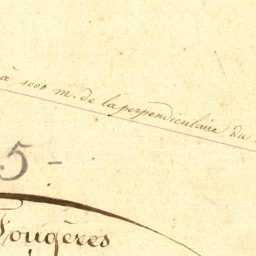 à 1000 m. de la perpendiculaire du
5 -
Fougères